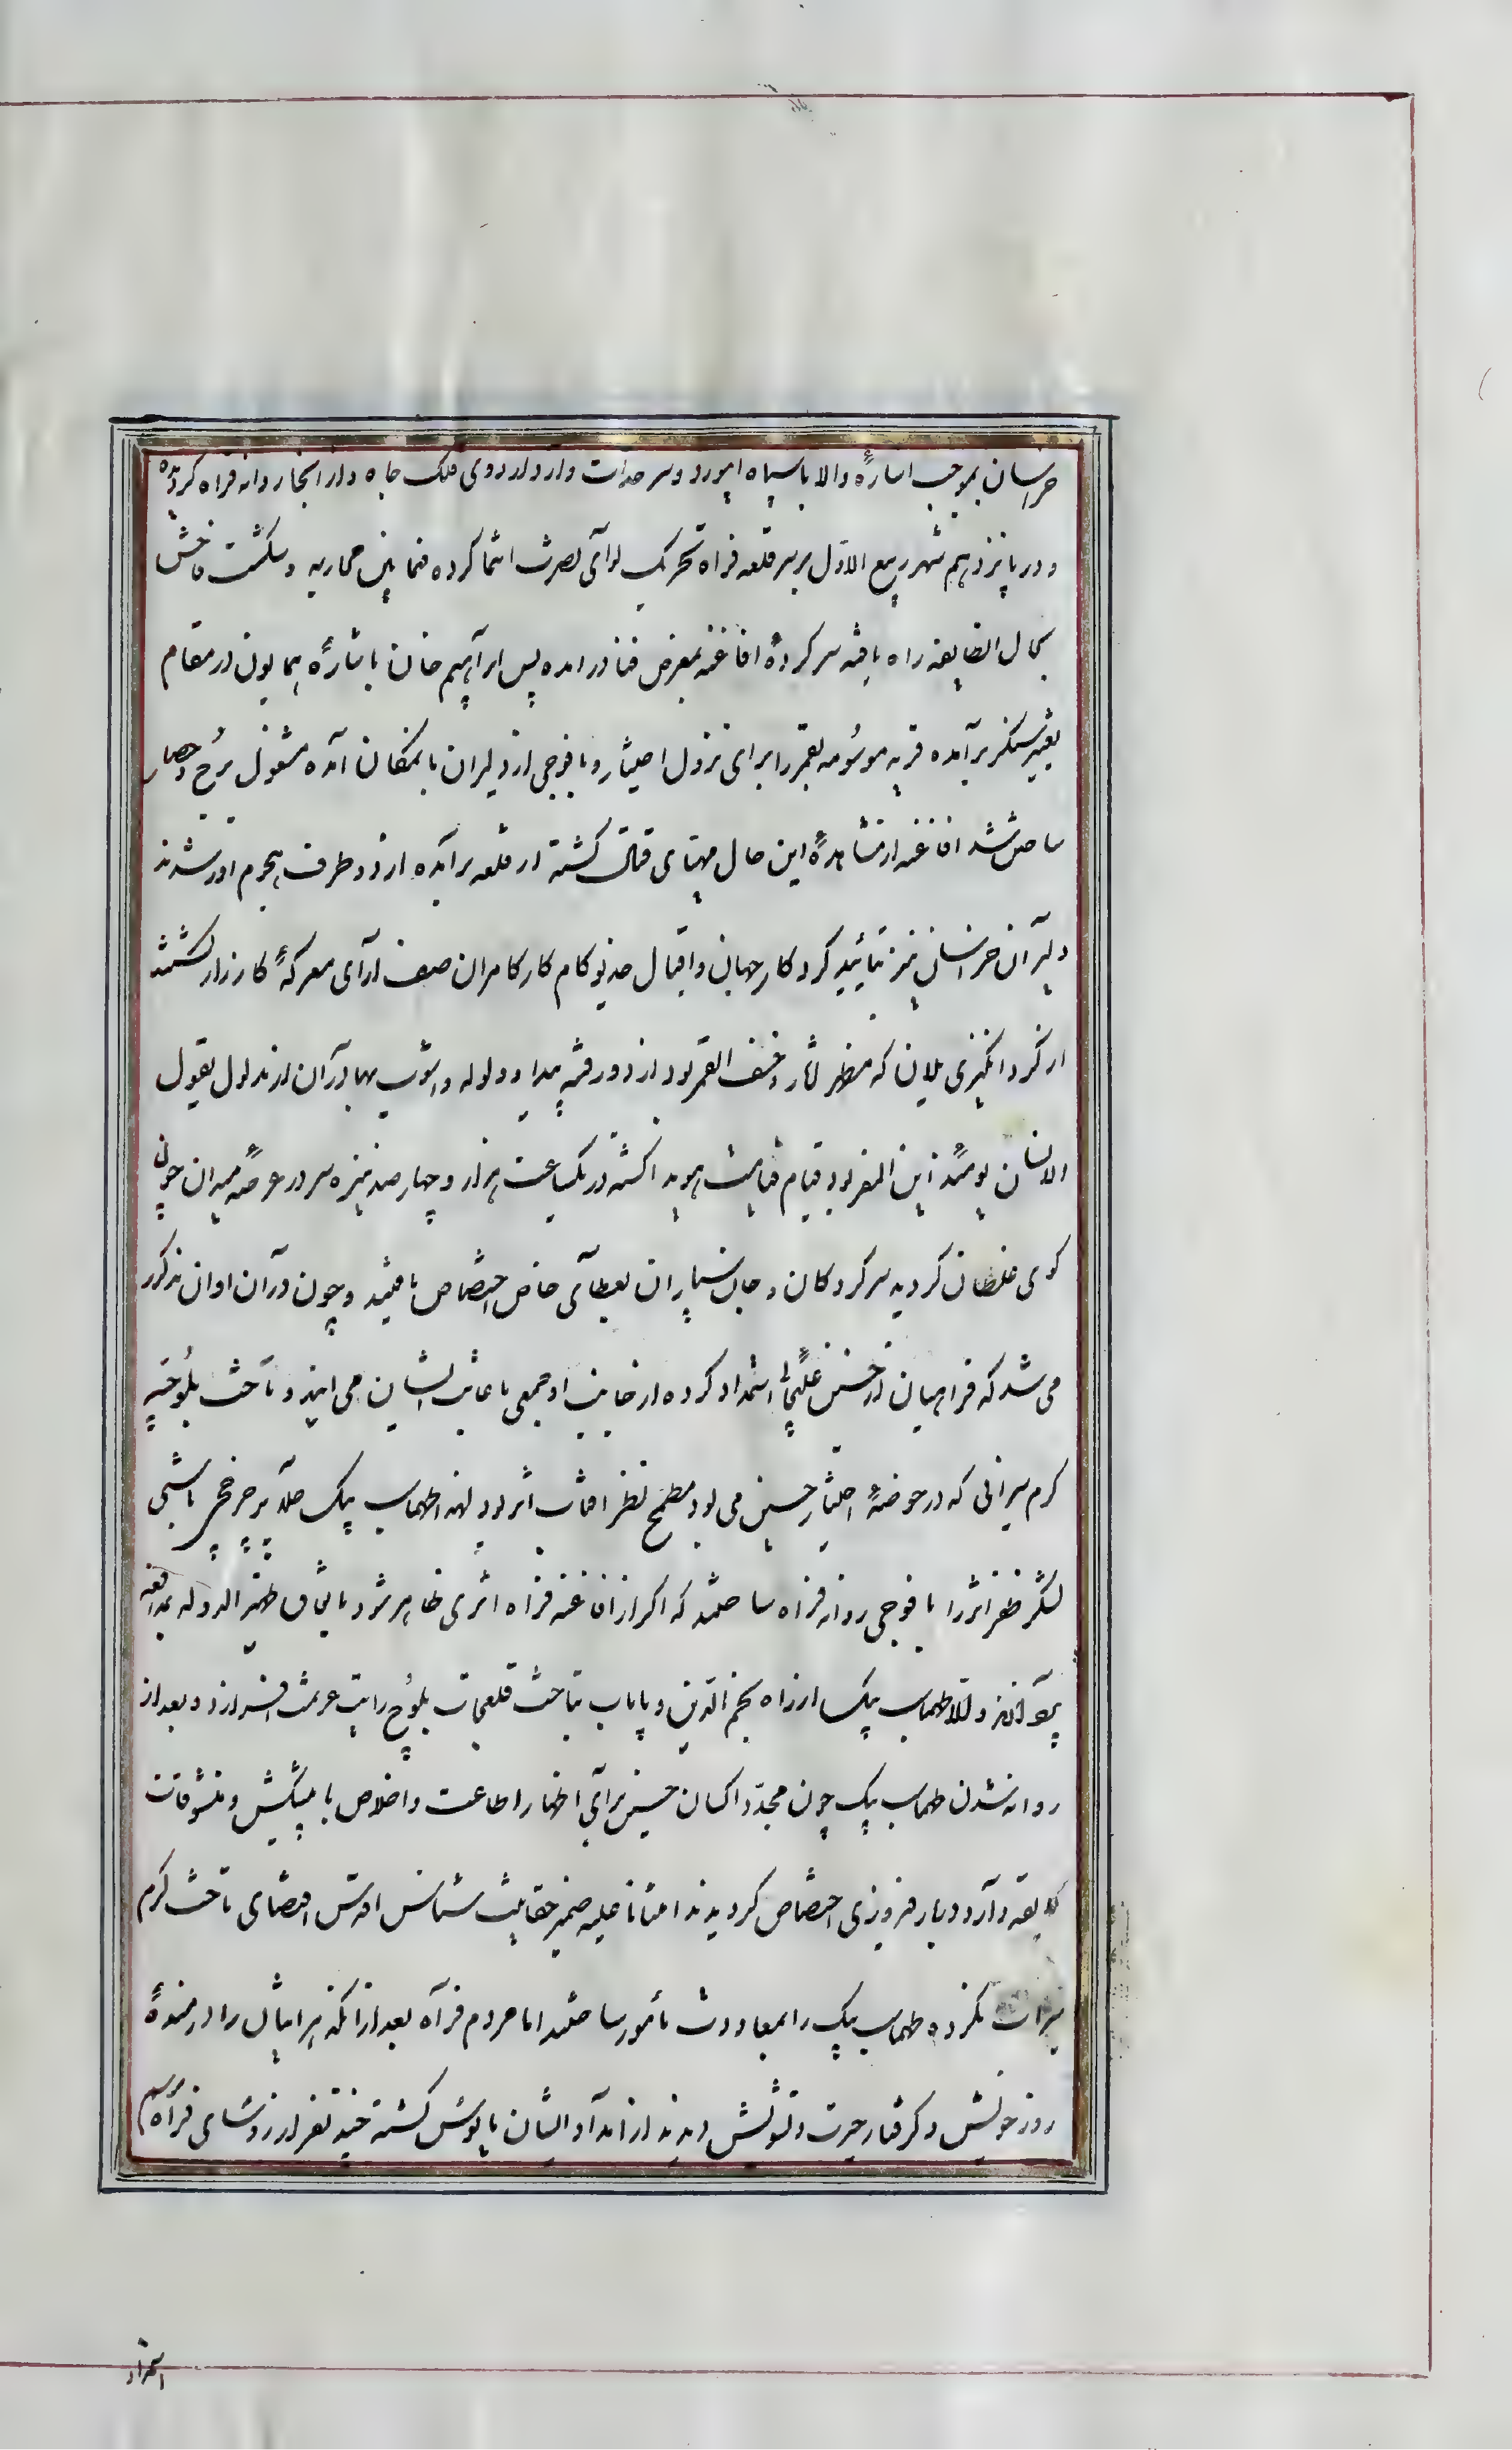 خراسان بموجب اشارهٔ والا با سپاه ابیورد و سرحدات وارد اردوی فلک جاه و از انجا روانه فراه گردیده
و در پانزدهم شهر ربیع الاول بر سر قلعه فراه تحریک لوآی نصرت انتما کرده فیمابین محاربه و شکست فاحش
بحال انطایفه راه یافته سرکردهٔ افاغنه بمعرض فنا در امده پس ابرآهیم خان باشارهٔ همایون در مقام
تغییر سنکر برآمده قریه موسُومه بقمر را برای نزول اختیار و با فوجی از دلیران بانمکان آمده مشغول برُج و حصار
ساختن شد افاغنه از مشاهدهٔ این حال مهیّای قتال کشته از قلعه برآمده از دو طرف هجوم اور شدند
دلیرآن خراسانی نیز بتائید کردکار جهان و اقبال خدیو کامکار کامران صف ارآی معرکهٔ کارزار کشتند
از کرد انکیزی یلان که مظهر اثار و خسف القمر بود از دو رفته پیدا و ولوله و اشوب بهادرآن از مدلول یقول
الانسان یومئذ این المفر بود قیام قیامت هویدا کشته در یکساعت هزار و چهارصد نیزه سر در عرصهٔ میدان چون
کوی غلطان کردید سرکردکان و جان سپاران بعطآی خاص اختصاص یافتند و چون درآن اوان مذکور
می شد که فراهیان از حسین غلیجائی استمداد کرده از جانب او جمعی باعانت ایشان می ایند و تاخت بلُوچیه
کرم سیرانی که در حوضهٔ اختیار حسین می بود مطمح نظر افتاب اثر بود لهذا طهماسب بیک جلآیر چرخچی باشی
لشکر ظفر اثر را با فوجی روانه فراه ساختند که اکر از افاغنه فراه اثری ظاهر شود باتفاق ظهیر الدوله بمدافعه
پردازند و الّا طهماسب بیک از راه نجم الدّین و پایاب بتاخت قلعجات بلُوچ رایت عزیمت افرازد و بعد از
روانه شدن طهماسب بیک چون مجدّدا کسان حسین برآی اظهار اطاعت و اخلاص با پیشکش و متسوقات
لایقه وآرد دربار فیروزی اختصاص کردیدند امتنانا علیه ضمیر حقانیت شناس اقدس اقتضای تاخت کرم
سیرات نکرده طهماسب بیک را بمعاودت مأمور ساختند اما مردم فرآه بعد از انکه ابراهیم خان را درمندهٔ
روز خویش و کرفتار حیرت و تشویش دیدند از امدآد ایشان مایوس کشته چند نفر از رؤسای فرآه بر سم
استمزاد